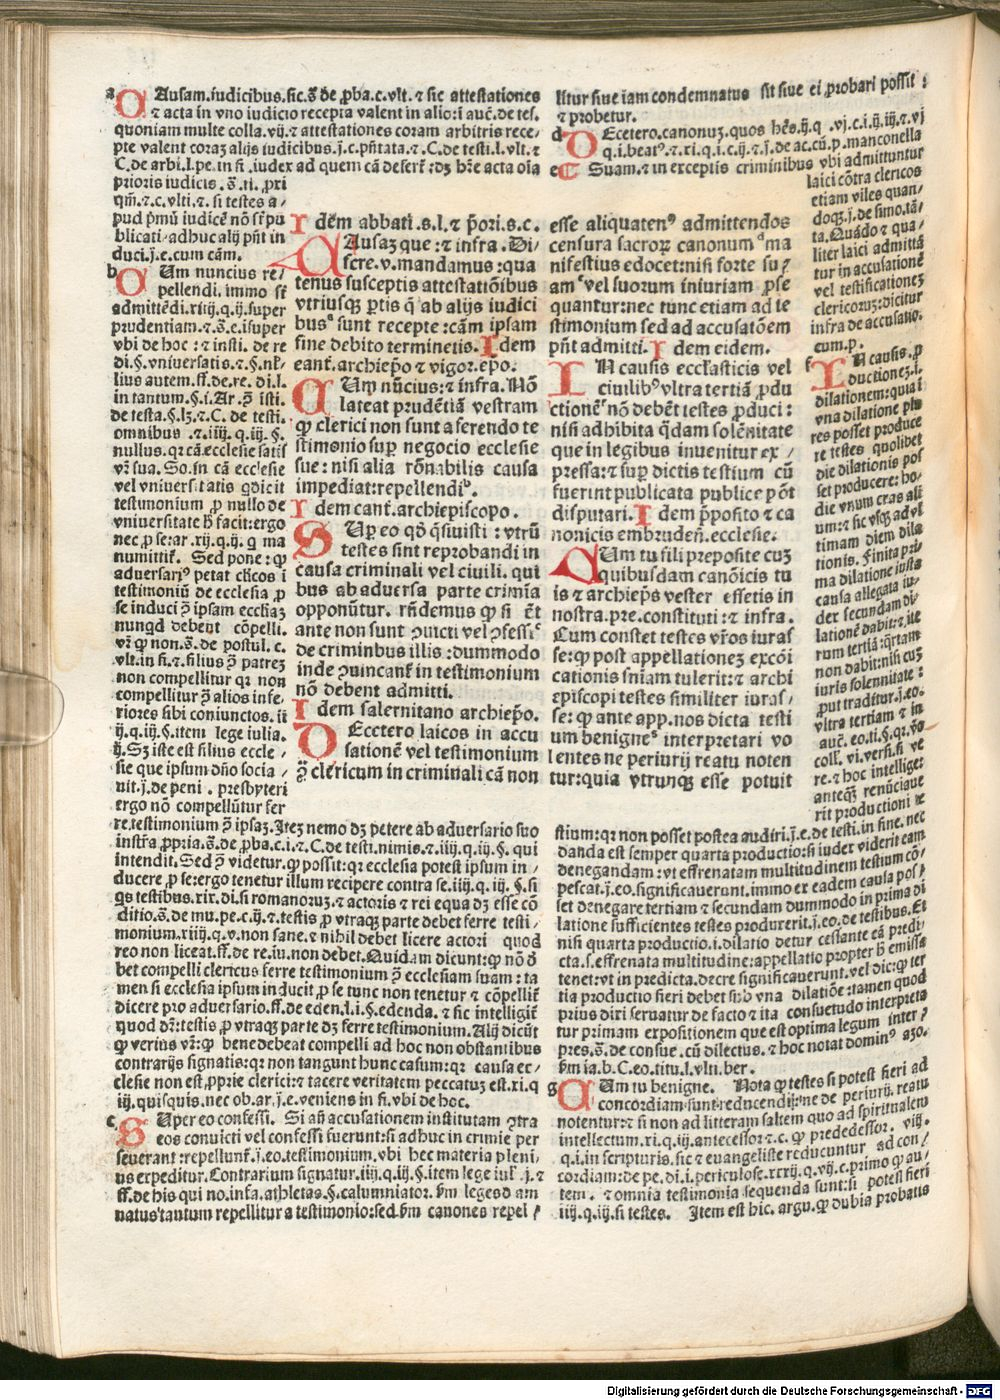 a CAusam.iudicibus.sic.s̄ de ꝓba.c.vlt.⁊ sic attestationes
⁊ acta in vno iudicio recepta valent in alio:ī auc̄.de tes.
quoniam multe colla.vij.⁊ attestationes coram arbitris rece-
pte valent coraz alijs iudicibus.j.c.pn̄tata.⁊.C.de testi.l.vlt.⁊
C.de arbi.l.pe.in fi.iudex ad quem cā defert̄:dz hr̄e acta oīa
prioris iudicis.s̄.ti.ꝓxi
qm̄.⁊.c.vlti.⁊.si testes a-
pud pm̄ū iudicē nō sr̄ pu
blicati adhuc alij pn̄t in
duci.j.e.cum cām.
b CUm nuncius re-
pellendi.immo sr̄
admittēdi.xiiij.q.ij.super
prudentiam.⁊.s̄.e.īsuper
vbi de hoc:⁊ insti.de re
di.§.vniuersatis.⁊.§.nł-
lius autem.ff.de.re.di.l.
in tantum.§.i.Ar.ꝯ̄ isti.
de testa.§.lz.⁊ C. de testi.
omnibus.⁊.iiij.q.iij.§.
nullus.qꝛ cā.ecclesie satis
vr̄ sua. So.in cā ecclesie
vel vniuersitatis ꝗdicit
testimonium ꝓ nullo de
vniuersitate ħ facit:ergo
nec ꝓ se:ar.xij.q.ij.q ma
numittit̄. Sed pone:ꝙ
adversariꝰ petat cl̄icos ī
testimoniū de ecclesia ꝓ
se induci ꝯ̄ ipsam eccłiaz
nunqd debent cōpelli.
vr̄ ꝙ non.s̄.de postul.c.
vlt.in fi.⁊ filius ꝯ̄ patrez
non compellitur qꝛ non
compellitur ꝯ̄ alios infe,
riores sibi coniunctos.iī
ij.q.iij.§.item lege iulia.
ij.Sz iste est filius eccle-
sie que ipsum dn̄o socia-
uit.j.de peni.presbyteri
ergo nō compellūtur fer
re.testimonium ꝯ̄ ipsaz.Itez nemo dz petere ab adversario suo
instr̄a ꝓpria.s̄.de ꝓba.c.i.⁊.C.de testi.nimis.⁊.iiij.q.iij.§.qui
intendit.Sed ꝯ̄ videtur.ꝙ possit:qꝛ ecclesia potest ipsum in-
ducere ꝓ se:ergo tenetur illum recipere contra se.iiij.q.iij.§.si
qs testibus.xix.di.si romanoruz.⁊ actoris ⁊ rei equa dz esse cō
ditio.s̄.de mu.pe.c.ij.⁊ testis ꝓ vtraqꝫ parte debet ferre testi-
monium.xiiij.q.v.non sane.⁊ nihil debet licere actori quod
reo non liceat.ff.de re.iu.non debet.Quidam dicunt:ꝙ nō d̄
bet compelli clericus ferre testimonium ꝯ̄ ecclesiam suam:ta
men si ecclesia ipsum inducit ꝓ se tunc non tenetur ⁊ cōpellit̄
dicere pro adversario.ff.de eden.l.i.§.edenda.⁊ sic intelligit̄
quod dr̄:testis ꝓ vtraqꝫ parte dz ferre testimonium.Alij dicūt
ꝙ verius vr̄:ꝙ bene debeat compelli ad hoc non obstantibus
contrarijs signatis:qꝛ non tangunt hunc casum:qꝛ causa ec-
clesie non est ꝓprie clerici:⁊ tacere veritatem peccatuz est.xi.q
iij.quisquis.nec ob.ar.j.e.veniens in fi.vbi de hoc.
c SUper eo confessi. Si an̄ accusationem institutam ꝯtra
eos conuicti vel confessi fuerunt:si adhuc in crimīe per
seuerant:repellunt̄.j.eo.testimonium.vbi hec materia pleni,
us expeditur.Contrarium signatur.iiij.q.iij.§.item lege iuł.j.⁊
ff.de his qui no.infa.athletas.§.calumniatoꝛ. ẜm leges dam
natus tantum repellitur a testimonio:sed ẜm canones repel-
Idem abbati.s.l.⁊ p̄ori.s.c.
CAusaz que:⁊ infra.Di-
scre.v.mandamus:qua
tenus susceptis attestatiōibus
vtriusqꝫ ꝑtis ꝗ ab alijs iudici
busᵃ sunt recepte:cām ipsam
fine debito terminetis. Idem
eant̄.archiep̄o ⁊ vigoꝛ.epo.
CUm nūcius:⁊ infra.Nō
lateat prudētiā vestram
ꝙ clerici non sunt a ferendo te
stimonio suꝑ negocio ecclesie
sue:nisi alia rōnabilis causa
impediat:repellendiᵇ.
Idem cant̄.archiepiscopo.
SUper eo qd̄ q̄siuisti:vtrū
testes sint reprobandi in
causa criminali vel ciuili.qui
bus ab adversa parte crimīa
opponūtur. rn̄demus ꝙ si ēt
ante non sunt ꝯuicti vel ꝯfessiᶜ
de criminbus illis:dummodo
inde ꝯuincant̄ in testimonium
nō debent admitti.
Idem salernitano archiep̄o.
DEcetero laicos in accu
sationē vel testimonium
ꝯ̄ clericum in criminali cā non
litur siue iam condemnatus sit siue ei probari possit:
⁊ probetur.
d DEcetero.canonuz.quos hēs.ij.q.vj.c.i.ij.iij.⁊ vj
q.i.beatꝰ.⁊.xi.q.i.c.ij.⁊.j.de ac.cū.p.manconella
e CSuam.⁊ in exceptis criminibus vbi admittuntur
laici cōtra clericos
etiam viles quan-
doqꝫ.j.de simo.tā-
ta.Quādo ⁊ qua-
liter laici admittā
tur in accusationē
vel testificationez
clericoruz:dicitur
infra de accusatio.
cum.p.
esse aliquatenꝰ admittendos
censura sacroꝝ canonumᵈ ma
nifestius edocet:nisi forte suꝫ
amᵉ vel suorum iniuriam ꝓse
quantur:nec tunc etiam ad te
stimonium sed ad accusatōem
pn̄t admitti. Idem eidem.
IN causis eccłasticis vel
ciuilibꝰ vltra tertiā ꝓdu
ctionēᶠ nō debēt testes ꝓduci:
nisi adhibita q̄dam solēnitate
que in legibus inuenitur ex-
pressa:⁊ suꝑ dictis testium cū
fuerint publicata publice pōt
disputari. Idem p̄posito ⁊ ca
nonicis embruden̄.ecclesie.
CUm tu fili preposite cuz
quibusdam canōicis tu
is ⁊ archiep̄s vester essetis in
nostra.pre.constituti:⁊ infra.
Cum constet testes vr̄os iuras
se:ꝙ post appellationez excōi
cationis sn̄iam tulerit:⁊ archi
episcopi testes similiter iuras-
se:ꝙ ante app.nos dicta testi
um benigneᵍ interpretari vo
lentes ne periurij reatu noten
tur:quia vtrunqꝫ esse potuit
f IN causis.ꝓ
ductionez.i.
dilationem:quai
vna dilatione plu
res posset produce
re testes quolibet
die dilationis pos
set producere:ho-
die vnum cras ali
um:⁊ sic vsqꝫ ad vl
timam diem dila
tionis. Finita pri-
ma dilatione iusta
causa allegata iu-
dex secundam di-
lationē dabit:⁊ ite
rum tertiā:q̄rtam
non dabit:nisi cuz
iuris solennitate:
ꝓut traditur.j.eo.
vltra tertiam ⁊ in
auc̄.eo.ti.§.qꝛ.vō
coll.vi.versi.si ve
re.⁊ hoc intellige:
anteqꝫ renūciaue
rit productioni te
stium:qꝛ non posset postea audiri.j.e.de testi.in fine.nec
danda est semper quarta productio:si iudex viderit eam
denegandam:vt effrenatam multitudinem testium cō-
pescat.j.eo.significauerunt.immo ex eadem causa pos-
set denegare tertiam ⁊ secundam dummodo in prima di
latione sufficientes testes produxerit.j.eo.de testibus.Et
nisi quarta productio.i.dilatio detur cessante eā predi-
cta.s.effrenata multitudine:appellatio propter ħ emissa
tenet:vt in predicta.decre.significauerunt.vel dic:ꝙ ter
tia productio fieri debet sub vna dilatiōe:tamen quod
prius dixi seruatur de facto ⁊ ita consuetudo interpreta
tur primam expositionem que est optima legum inter-
pres.s̄.de consue.cū dilectus.⁊ hoc notat dominꝰ azo.
ẜm ia.b.C.eo.titu.l.vlti.ber.
g CUm tu benigne. Nota ꝙ testes si potest fieri ad
concordiam sunt reducendi:ne de periurij reatu
notentur:⁊ si non ad litteram saltem quo ad spiritualem
intellectum.xi.q.iij.antecessor.⁊.c. ꝙ prededessor. viij.
q.i.in scripturis.sic ⁊ euangeliste reducuntur ad con-
cordiam:de pe.di.i.periculose.xxxij.q.vij.c.primo ꝙ au-
tem.⁊ omnia testimonia sequenda sunt:si potest fieri
iiij.q.iij.si testes. Item est hic. argu.ꝙ dubia probatis
Digitalisierung gefördert durch die Deutsche Forschungsgemeinschaft - DFG